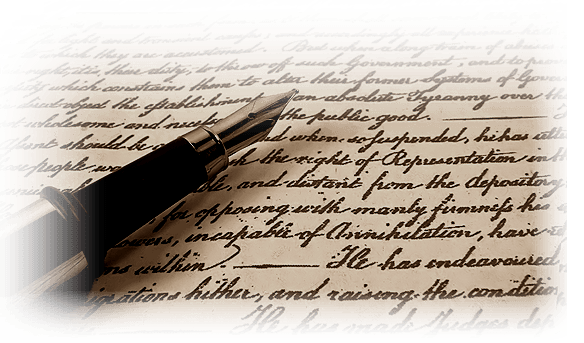 which they are accustomed. But when a long train of abuses
right, it is, their duty, to throw off such Government, and to pro
ity which constrains them to alter their former Systems of Gover
direct object the establishment an absolute Tyranny over th
wholesome and necess the public good.
Assent should be d when so suspended, he has utte
people w the right of Representation in th
ble, and distant from the depository
for opposing with manly firmness his
owers, incapable of Annihilation, have re
ms within. He has endeavoured
igrations hither, and raising the conditio
He has made Judges dep